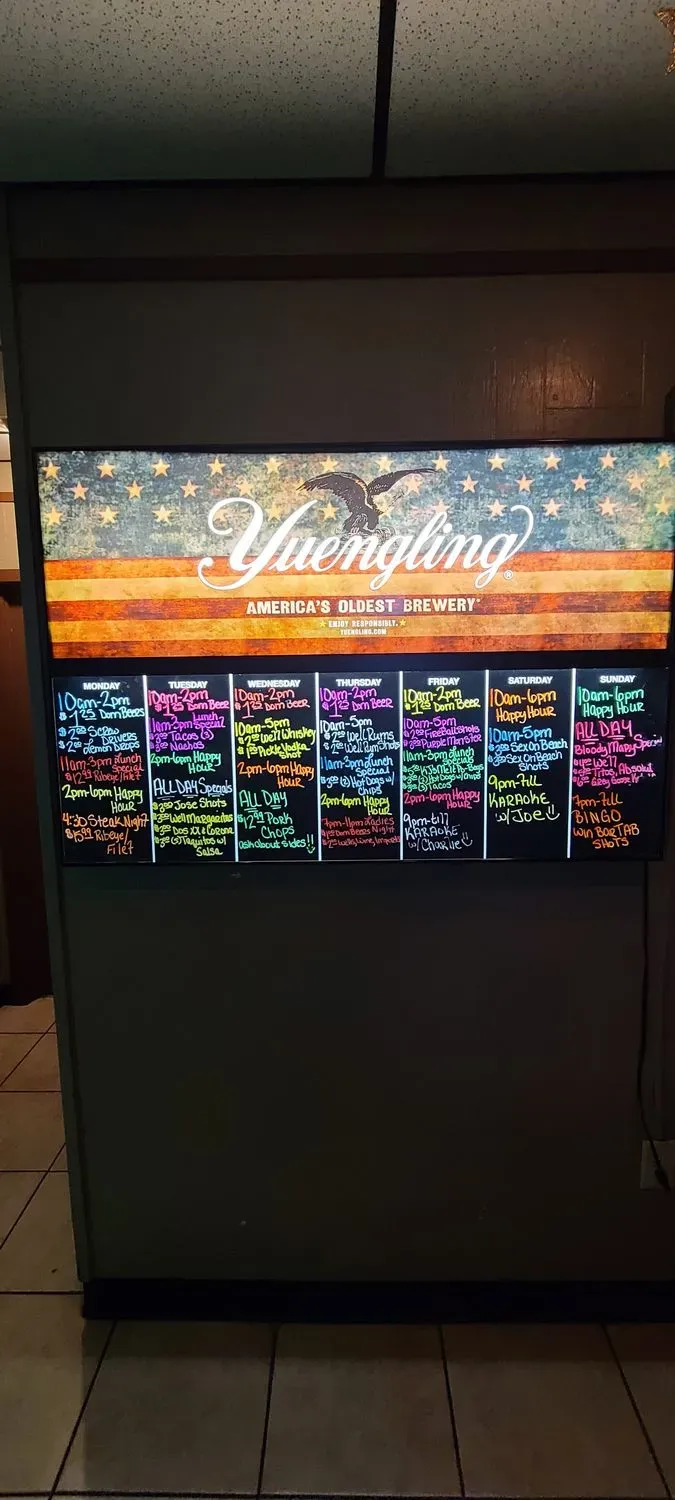 Yuengling®
AMERICA'S OLDEST BREWERY
★ ENJOY RESPONSIBLY. ★
YUENGLING.COM
MONDAY
10am-2pm
$1.25 Dom Beers
$2.00 Screw
Drivers
$2.00 Lemon Drops
11am-3pm Lunch
Special
$12.99 Ribeye/Filet
2pm-6pm Happy
Hour
4:30 Steak Night
$15.99 Ribeye/
Filet
TUESDAY
10am-2pm
$1.25 Dom Beer
Lunch
11am-3pm Special
Tacos
Nachos
2pm-6pm Happy
Hour
ALL DAY Specials
Jose Shots
Well Margaritas
Dos XX & Corona
Taquitos w/
Salsa
WEDNESDAY
10am-2pm
Dom Beer
10am-5pm
Well Whiskey
Pickle Vodka
Shot
2pm-6pm Happy
Hour
ALL DAY
$12.99 Pork
Chops
ask about sides!!
THURSDAY
10am-2pm
Dom Beer
10am-5pm
Well Rums
Well Rum Shots
11am-3pm Lunch
Special
(2) Hot Dogs w/
Chips
2pm-6pm Happy
Hour
7pm-11pm Ladies
Dom Beers Night
FRIDAY
10am-2pm
$1.25 Dom Beer
10am-5pm
Fireball Shots
Purple Monster
11am-3pm Lunch
Specials
Hot Dogs w/Chips
Tacos
2pm-6pm Happy
Hour
9pm-till
KARAOKE
w/ Charlie
SATURDAY
10am-6pm
Happy Hour
10am-5pm
Sex On Beach
Sex On Beach
Shots
9pm-till
KARAOKE
w/ Joe
SUNDAY
10am-6pm
Happy Hour
ALL DAY
Bloody Mary Special
Well
Titos, Absolut
Grey Goose
7pm-till
BINGO
WIN BAR TAB
SHOTS